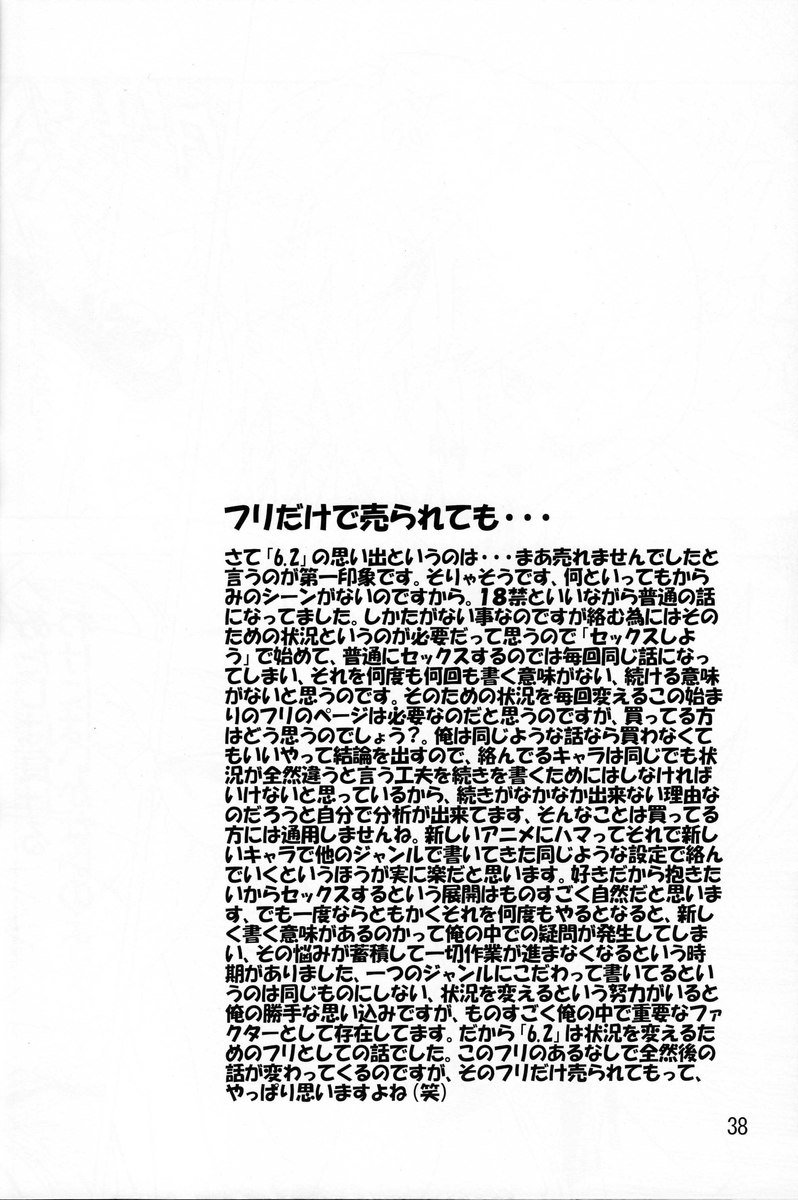 フリだけで売られても・・・
さて「6.2」の思い出というのは・・・まあ売れませんでしたと
言うのが第一印象です。そりゃそうです、何といってもから
みのシーンがないのですから。18禁といいながら普通の話
になってました。しかたがない事なのですが絡む為にはその
ための状況というのが必要だって思うので「セックスしよ
う」で始めて、普通にセックスするのでは毎回同じ話になっ
てしまい、それを何度も何回も書く意味がない、続ける意味
がないと思うのです。そのための状況を毎回変えるこの始ま
りのフリのページは必要なのだと思うのですが、買ってる方
はどう思うのでしょう?。俺は同じような話なら買わなくて
もいいやって結論を出すので、絡んでるキャラは同じでも状
況が全然違うと言う工夫を続きを書くためにはしなければ
いけないと思っているから、続きがなかなか出来ない理由な
のだろうと自分で分析が出来てます、そんなことは買ってる
方には通用しませんね。新しいアニメにハマってそれで新し
いキャラで他のジャンルで書いてきた同じような設定で絡ん
でいくというほうが実に楽だと思います。好きだから抱きた
いからセックスするという展開はものすごく自然だと思いま
す、でも一度ならともかくそれを何度もやるとなると、新し
く書く意味があるのかって俺の中での疑問が発生してしま
い、その悩みが蓄積して一切作業が進まなくなるという時
期がありました、一つのジャンルにこだわって書いてるとい
うのは同じものにしない、状況を変えるという努力がいると
俺の勝手な思い込みですが、ものすごく俺の中で重要なファ
クターとして存在してます。だから「6.2」は状況を変えるた
めのフリとしての話でした。このフリのあるなしで全然後の
話が変わってくるのですが、そのフリだけ売られてもって、
やっぱり思いますよね(笑)
38